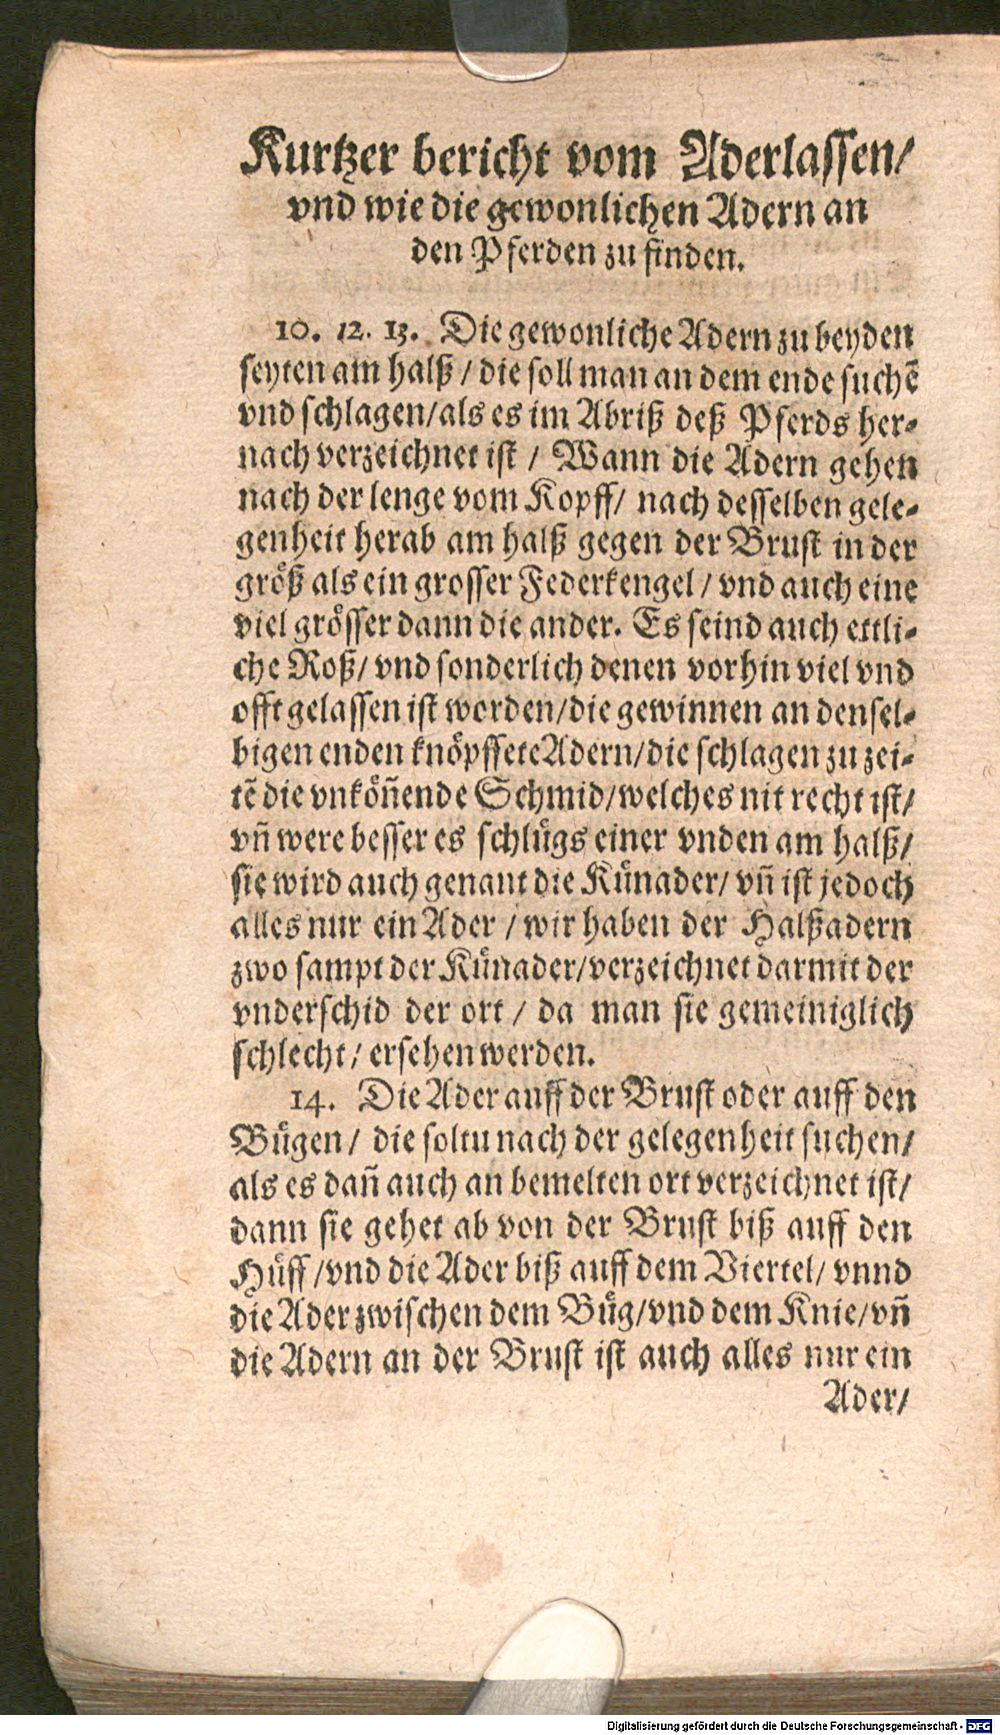 Kurtzer bericht vom Aderlassen/
vnd wie die gewonlichen Adern an
den Pferden zu finden.
10. 12. 13. Die gewonliche Adern zu beyden
seyten am halß / die soll man an dem ende suchẽ
vnd schlagen/als es im Abriß deß Pferds her-
nach verzeichnet ist / Wann die Adern gehen
nach der lenge vom Kopff/ nach desselben gele-
genheit herab am halß gegen der Brust in der
größ als ein grosser Federkengel / vnd auch eine
viel grösser dann die ander. Es seind auch ettli-
che Roß/ vnd sonderlich denen vorhin viel vnd
offt gelassen ist worden/die gewinnen an densel-
bigen enden knöpffete Adern/die schlagen zu zei-
tẽ die vnköñende Schmid/welches nit recht ist/
vñ were besser es schlůgs einer vnden am halß/
sie wird auch genant die Künader/ vñ ist jedoch
alles nur ein Ader / wir haben der Halßadern
zwo sampt der Künader/verzeichnet darmit der
vnderschid der ort / da man sie gemeiniglich
schlecht/ ersehen werden.
14. Die Ader auff der Brust oder auff den
Bůgen/ die soltu nach der gelegenheit suchen/
als es dañ auch an bemelten ort verzeichnet ist/
dann sie gehet ab von der Brust biß auff den
Hůff /vnd die Ader biß auff dem Viertel/ vnnd
die Ader zwischen dem Bůg/vnd dem Knie/vñ
die Adern an der Brust ist auch alles nur ein
Ader/
Digitalisierung gefördert durch die Deutsche Forschungsgemeinschaft - DFG